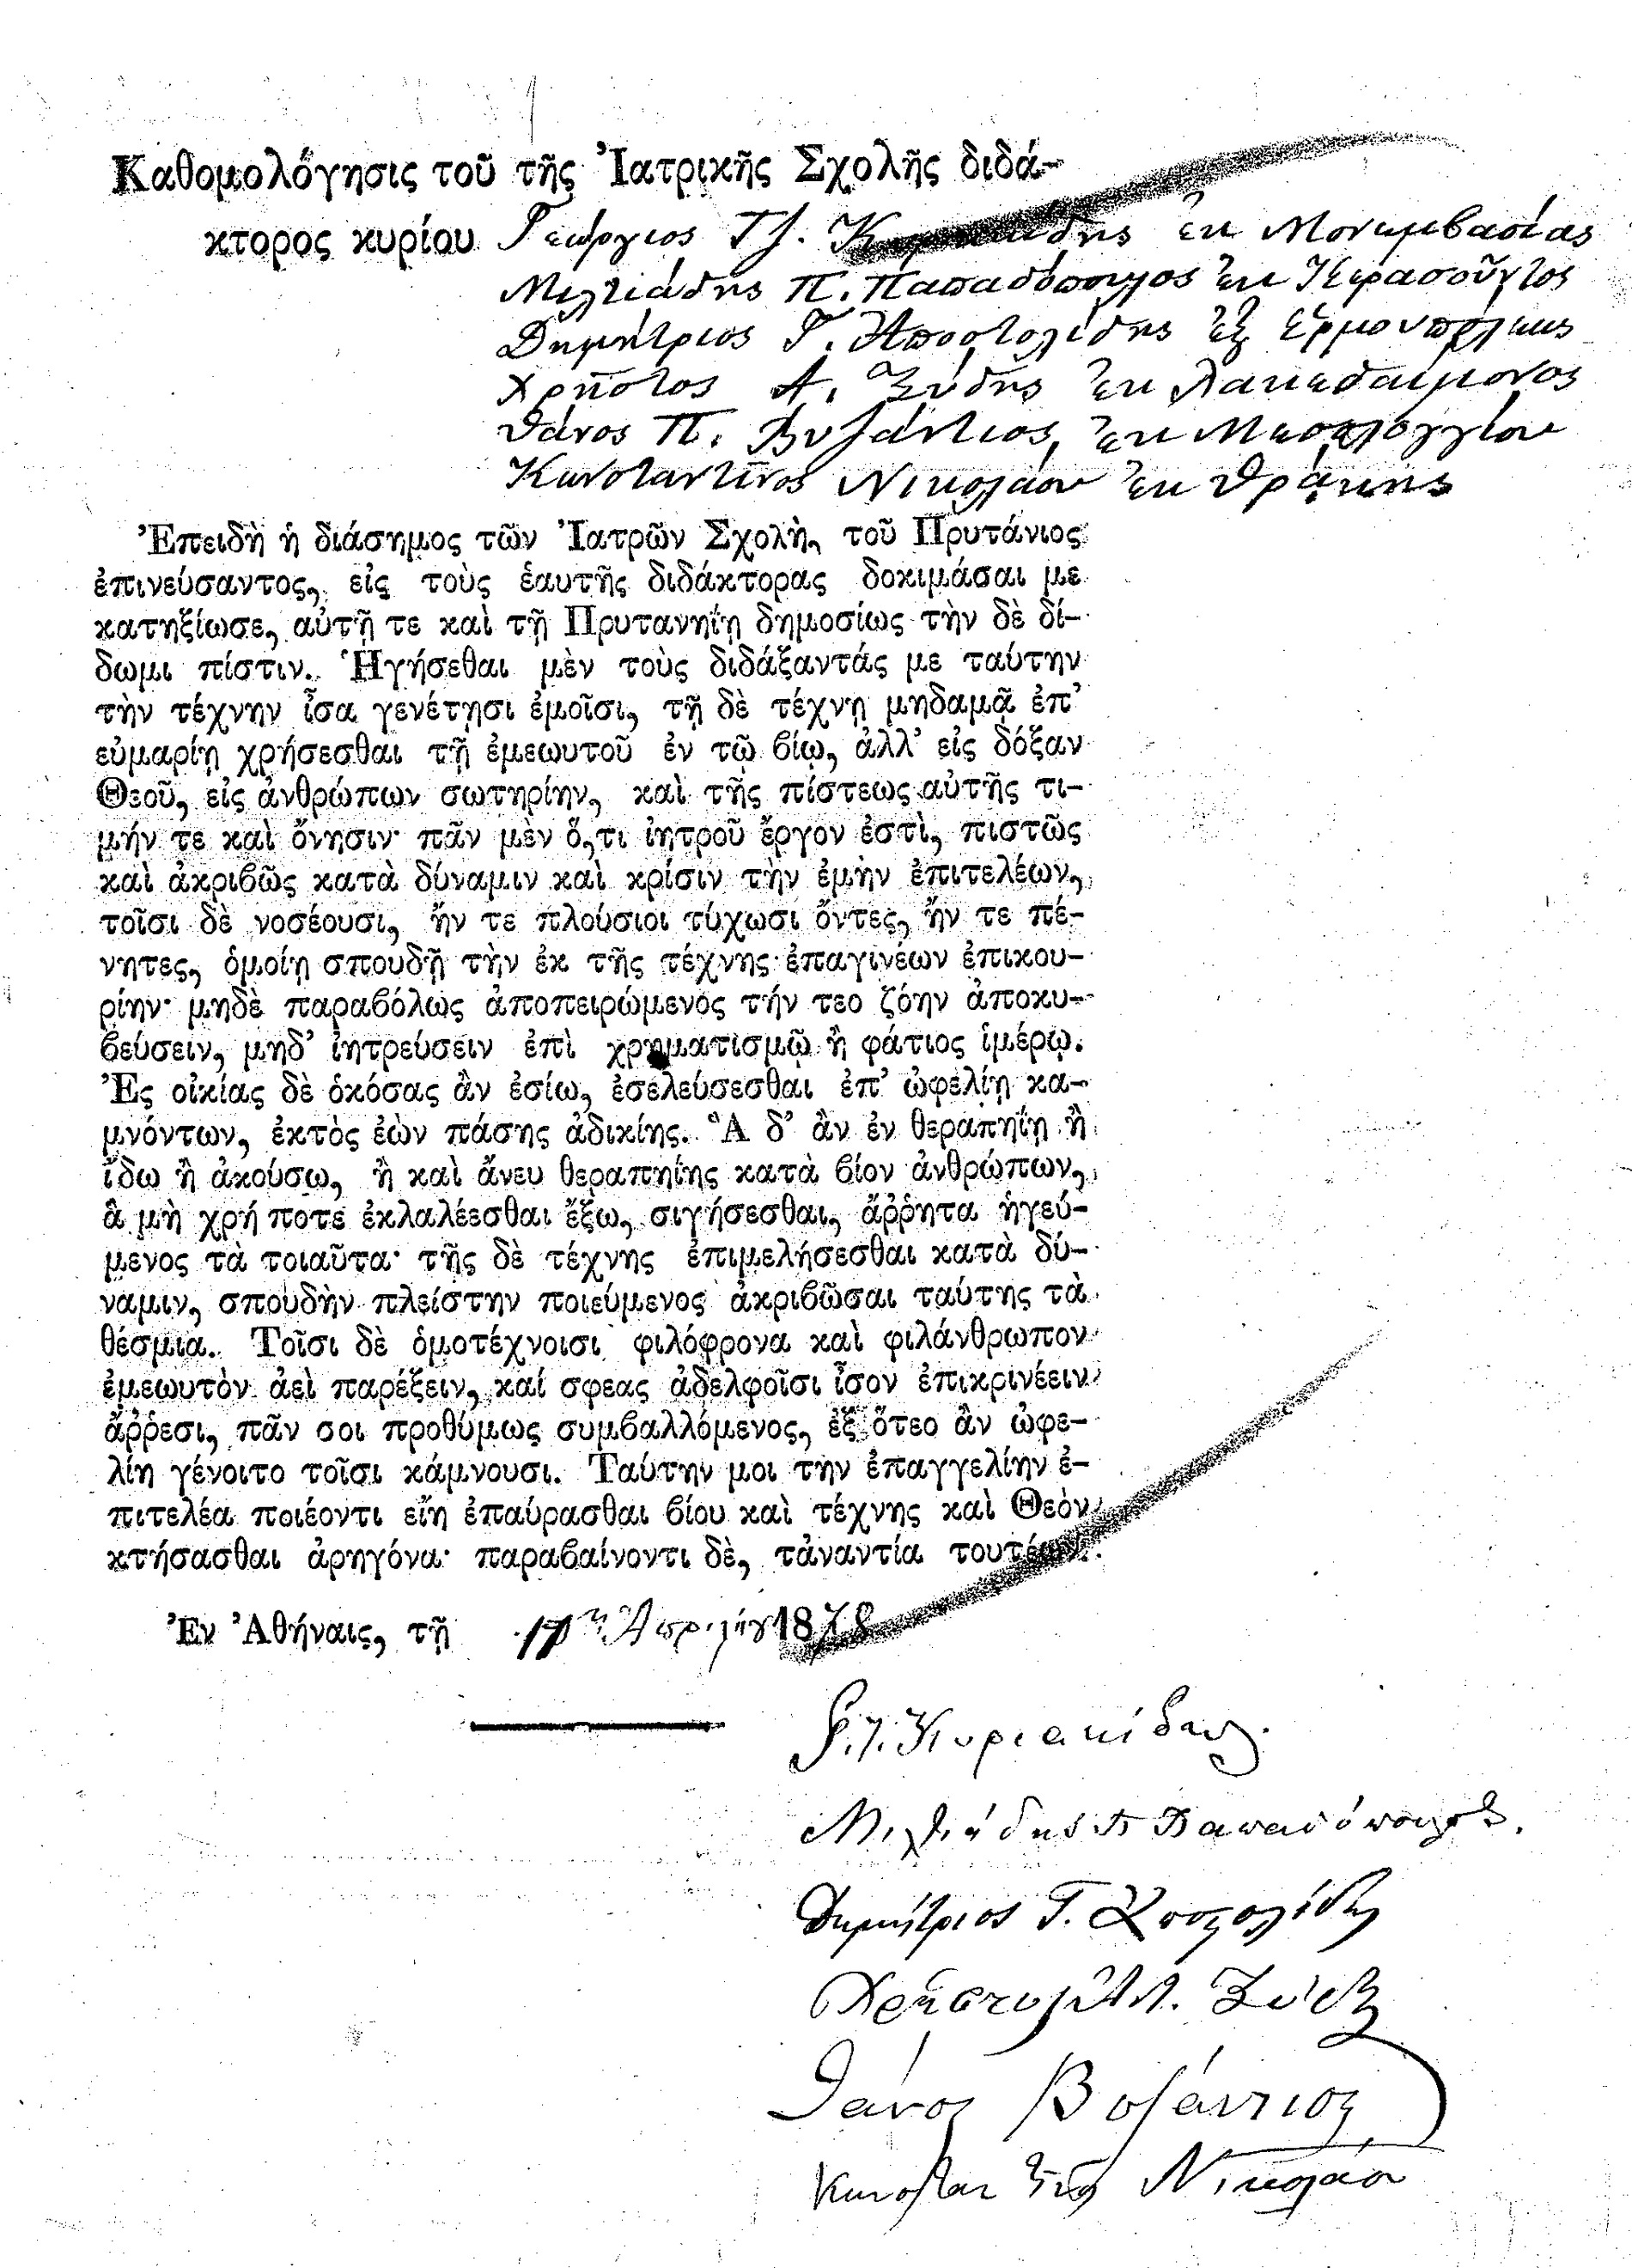 Καθομολόγησις τοῦ τῆς Ἰατρικῆς Σχολῆς διδά-
κτορος κυρίου Γεώργιος Τζ. Κυριακίδης ἐκ Μονεμβασίας
Μιλτιάδης Π. Παπαδόπουλος ἐκ Κερασοῦντος
Δημήτριος Γ. Ἀποστολίδης ἐξ Ἑρμουπόλεως
Χρῆστος Α. Ξύδης ἐκ Λακεδαίμονος
Θάνος Π. Βυζάντιος, ἐκ Μεσολογγίου
Κωνσταντῖνος Νικολάου ἐκ Θράκης
Ἐπειδὴ ἡ διάσημος τῶν Ἰατρῶν Σχολὴ, τοῦ Πρυτάνιος
ἐπινεύσαντος, εἰς τοὺς ἑαυτῆς διδάκτορας δοκιμάσαι με
κατηξίωσε, αὐτῇ τε καὶ τῇ Πρυτανηΐῃ δημοσίως τὴν δὲ δί-
δωμι πίστιν. Ἡγήσεθαι μὲν τοὺς διδάξαντάς με ταύτην
τὴν τέχνην ἶσα γενέτῃσι ἐμοῖσι, τῇ δὲ τέχνῃ μηδαμᾷ ἐπ’
εὐμαρίῃ χρήσεσθαι τῇ ἐμεωυτοῦ ἐν τῷ βίῳ, ἀλλ’ εἰς δόξαν
Θεοῦ, εἰς ἀνθρώπων σωτηρίην, καὶ τῆς πίστεως αὐτῆς τι-
μήν τε καὶ ὄνησιν· πᾶν μὲν ὅ,τι ἰητροῦ ἔργον ἐστὶ, πιστῶς
καὶ ἀκριβῶς κατὰ δύναμιν καὶ κρίσιν τὴν ἐμὴν ἐπιτελέων,
τοῖσι δὲ νοσέουσι, ἤν τε πλούσιοι τύχωσι ὄντες, ἤν τε πέ-
νητες, ὁμοίῃ σπουδῇ τὴν ἐκ τῆς τέχνης ἐπαγινέων ἐπικου-
ρίην· μηδὲ παραβόλως ἀποπειρώμενος τήν τεο ζόην ἀποκυ-
βεύσειν, μηδ’ ἰητρεύσειν ἐπὶ χρηματισμῷ ἢ φάτιος ἱμέρῳ.
Ἐς οἰκίας δὲ ὁκόσας ἂν ἐσίω, ἐσελεύσεσθαι ἐπ’ ὠφελίῃ κα-
μνόντων, ἐκτὸς ἐὼν πάσης ἀδικίης. Ἃ δ’ ἂν ἐν θεραπηΐῃ ἢ
ἴδω ἢ ἀκούσω, ἢ καὶ ἄνευ θεραπηΐης κατὰ βίον ἀνθρώπων,
ἃ μὴ χρή ποτε ἐκλαλέεσθαι ἔξω, σιγήσεσθαι, ἄῤῥητα ἡγεύ-
μενος τὰ τοιαῦτα· τῆς δὲ τέχνης ἐπιμελήσεσθαι κατὰ δύ-
ναμιν, σπουδὴν πλείστην ποιεύμενος ἀκριβῶσαι ταύτης τὰ
θέσμια. Τοῖσι δὲ ὁμοτέχνοισι φιλόφρονα καὶ φιλάνθρωπον
ἐμεωυτὸν ἀεὶ παρέξειν, καί σφεας ἀδελφοῖσι ἶσον ἐπικρινέειν
ἄῤῥεσι, πᾶν σοι προθύμως συμβαλλόμενος, ἐξ ὅτεο ἂν ὠφε-
λίη γένοιτο τοῖσι κάμνουσι. Ταύτην μοι τὴν ἐπαγγελίην ἐ-
πιτελέα ποιέοντι εἴη ἐπαύρασθαι βίου καὶ τέχνης καὶ Θεὸν
κτήσασθαι ἀρηγόνα· παραβαίνοντι δὲ, τἀναντία τουτέων.
Ἐν Ἀθήναις, τῇ 17ῃ Ἀπριλίου 1878
Γ. Τζ. Κυριακίδης.
Μιλτιάδης Π Παπαδόπουλος.
Δημήτριος Γ. Ἀποστολίδης
Χρῆστος Α. Ξύδης
Θάνος Βυζάντιος
Κωνσταντῖνος Νικολάου